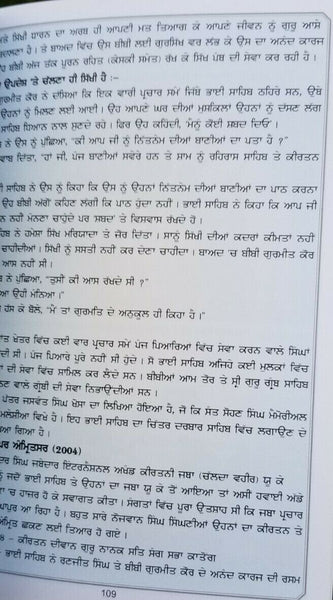 ਤੇ ਸਿੱਖੀ ਧਾਰਨ ਦਾ ਅਰਥ ਹੀ ਆਪਣੀ ਮਤ ਤਿਆਗ ਕੇ ਆਪਣੇ ਜੀਵਨ ਨੂੰ ਗੁਰੂ ਆਸ਼ੇ
ਢਾਲਣਾ ਹੈ। ਤੇ ਬਾਅਦ ਵਿੱਚ ਉਸ ਬੀਬੀ ਲਈ ਗੁਰਸਿੱਖ ਵਰ ਲੱਭ ਕੇ ਉਸ ਦਾ ਅਨੰਦ ਕਾਰਜ
ਬੀਬੀ ਅੱਜ ਤੱਕ ਪੂਰਨ ਰਹਿਤ (ਕੇਸਕੀ ਸਮੇਤ) ਰੱਖ ਕੇ ਸਿੱਖ ਪੰਥ ਦੀ ਸੇਵਾ ਕਰ ਰਹੀ ਹੈ।
ਉਪਦੇਸ਼ 'ਤੇ ਚੱਲਣਾ ਹੀ ਸਿੱਖੀ ਹੈ :-
ਗੁਰਮੀਤ ਕੌਰ ਨੇ ਦੱਸਿਆ ਕਿ ਇਕ ਵਾਰੀ ਪ੍ਰਚਾਰ ਸਮੇਂ ਜਿੱਥੇ ਭਾਈ ਸਾਹਿਬ ਠਹਿਰੇ ਸਨ, ਉੱਥੇ
ਉਹਨਾਂ ਨੂੰ ਮਿਲਣ ਲਈ ਆਈ। ਉਹ ਆਪਣੇ ਘਰ ਦੀਆਂ ਮੁਸ਼ਕਿਲਾਂ ਉਹਨਾਂ ਨੂੰ ਦੱਸਣ ਲੱਗ
ਸਾਹਿਬ ਧਿਆਨ ਨਾਲ ਸੁਣਦੇ ਰਹੇ। ਫਿਰ ਉਹ ਕਹਿੰਦੀ, "ਮੈਨੂੰ ਕੋਈ ਸ਼ਬਦ ਦਿਓ"।
ਨੇ ਉਸ ਨੂੰ ਪੁੱਛਿਆ, "ਕੀ ਆਪ ਜੀ ਨੂੰ ਨਿੱਤਨੇਮ ਦੀਆਂ ਬਾਣੀਆਂ ਦਾ ਪਤਾ ਹੈ ?"
ਦਿੱਤਾ, "ਹਾਂ ਜੀ, ਪੰਜ ਬਾਣੀਆਂ ਸਵੇਰੇ ਹਨ ਤੇ ਸ਼ਾਮ ਨੂੰ ਰਹਿਰਾਸ ਸਾਹਿਬ ਤੇ ਕੀਰਤਨ
ਸਾਹਿਬ ਨੇ ਉਸ ਨੂੰ ਕਿਹਾ ਕਿ ਉਸ ਨੂੰ ਉਹਨਾਂ ਨਿੱਤਨੇਮ ਦੀਆਂ ਬਾਣੀਆਂ ਦਾ ਪਾਠ ਕਰਨਾ
ਉਹ ਬੀਬੀ ਅੱਗੋਂ ਕਹਿਣ ਲੱਗੀ ਕਿ ਪਾਠ ਹੁੰਦਾ ਨਹੀਂ। ਭਾਈ ਸਾਹਿਬ ਨੇ ਕਿਹਾ ਕਿ ਆਪ ਜੀ
ਨਹੀਂ ਮੰਨਣਾ ਚਾਹੁੰਦੇ ਪਰ ਸ਼ਬਦ' ਤੇ ਵਿਸ਼ਵਾਸ ਰੱਖਦੇ ਹੋ।
ਨੇ ਹਮੇਸ਼ਾ ਸਿੱਖ ਮਰਿਯਾਦਾ ਤੇ ਜ਼ੋਰ ਦਿੱਤਾ। ਸਾਨੂੰ ਸਿੱਖੀ ਦੀਆਂ ਕਦਰਾਂ ਕੀਮਤਾਂ ਨਹੀਂ
ਚਾਹੀਦੀਆਂ। ਸਿੱਖੀ ਨੂੰ ਸਸਤੀ ਨਹੀਂ ਕਰ ਦੇਣਾ ਚਾਹੀਦਾ। ਬਾਅਦ 'ਚ ਬੀਬੀ ਗੁਰਮੀਤ ਕੌਰ
ਆਸ ਨਹੀਂ ਸੀ।
ਨੇ ਪੁੱਛਿਆ, "ਤੁਸੀਂ ਕੀ ਆਸ ਰੱਖਦੇ ਸੀ ?"
ਉਹੀ ਮੰਨਿਆ।"
ਹੱਸ ਕੇ ਬੋਲੇ, "ਮੈਂ ਤਾਂ ਗੁਰਮਤਿ ਦੇ ਅਨੁਕੂਲ ਹੀ ਕਿਹਾ ਹੈ।"
ਖੇਤਰ ਵਿੱਚ ਕਈ ਵਾਰ ਪ੍ਰਚਾਰ ਸਮੇਂ ਪੰਜ ਪਿਆਰਿਆਂ ਵਿੱਚ ਸੇਵਾ ਕਰਨ ਵਾਲੇ ਸਿੰਘਾਂ
ਦੀ ਸੀ। ਪੰਜ ਪਿਆਰੇ ਪੂਰੇ ਨਹੀਂ ਸੀ ਹੁੰਦੇ। ਸੋ ਭਾਈ ਸਾਹਿਬ ਅਜਿਹੇ ਕਈ ਮੁਲਕਾਂ ਵਿੱਚ
ਦੀ ਸੇਵਾ ਵਿੱਚ ਸ਼ਾਮਿਲ ਕਰ ਲੈਂਦੇ ਸਨ। ਬੀਬੀਆਂ ਆਮ ਤੌਰ ਤੇ ਸ੍ਰੀ ਗੁਰੂ ਗ੍ਰੰਥ ਸਾਹਿਬ
ਵਾਲੇ ਗ੍ਰੰਥੀ ਦੀ ਸੇਵਾ ਨਿਭਾਉਂਦੀਆਂ ਸਨ।
ਪੱਤਰ ਜਸਵੰਤ ਸਿੰਘ ਖੋਸਾ ਦਾ ਲਿਖਿਆ ਹੋਇਆ ਹੈ, ਜੋ ਕਿ ਸੰਤ ਸੋਹਣ ਸਿੰਘ ਮੈਮੋਰੀਅਲ
ਮਲੇਸ਼ੀਆ ਵਿਖੇ ਹੈ। ਇਹ ਭਾਈ ਸਾਹਿਬ ਦਾ ਚਿੱਤਰ ਦਰਬਾਰ ਸਾਹਿਬ ਵਿੱਚ ਲਗਾਉਣ ਦੇ
ਗਿਆ ਹੈ।
ਅੰਮ੍ਰਿਤਸਰ (2004)
ਸਿੰਘ ਜਥੇਦਾਰ ਇੰਟਰਨੈਸ਼ਨਲ ਅਖੰਡ ਕੀਰਤਨੀ ਜਥਾ (ਚੱਲਦਾ ਵਹੀਰ) ਯੂ ਕੇ
ਜਦੋਂ ਭਾਈ ਸਾਹਿਬ ਤੇ ਉਹਨਾਂ ਦਾ ਜਥਾ ਯੂ ਕੇ ਤੋਂ ਆਇਆ ਤਾਂ ਅਸੀਂ ਹਵਾਈ ਅੱਡੇ
ਹਾਜ਼ਰ ਹੋ ਕੇ ਸਵਾਗਤ ਕੀਤਾ। ਸੰਗਤਾਂ ਵਿੱਚ ਪੂਰਾ ਉਤਸ਼ਾਹ ਸੀ ਕਿ ਜਥਾ ਪ੍ਰਚਾਰ
ਆ ਰਿਹਾ ਹੈ। ਬਹੁਤ ਸਾਰੇ ਨੌਜਵਾਨ ਸਿੰਘ ਸਿੰਘਣੀਆਂ ਉਹਨਾਂ ਦਾ ਕੀਰਤਨ ਤੇ
ਅੰਮ੍ਰਿਤ ਛਕਣ ਲਈ ਤਿਆਰ ਹੋ ਗਏ।
- ਕੀਰਤਨ ਦੀਵਾਨ ਗੁਰੂ ਨਾਨਕ ਸਤਿ ਸੰਗ ਸਭਾ ਕਾਤੋਂਗ
ਭਾਈ ਸਾਹਿਬ ਨੇ ਰਣਜੀਤ ਸਿੰਘ ਤੇ ਬੀਬੀ ਗੁਰਮੀਤ ਕੌਰ ਦੇ ਅਨੰਦ ਕਾਰਜ ਦੀ ਰਸਮ
109